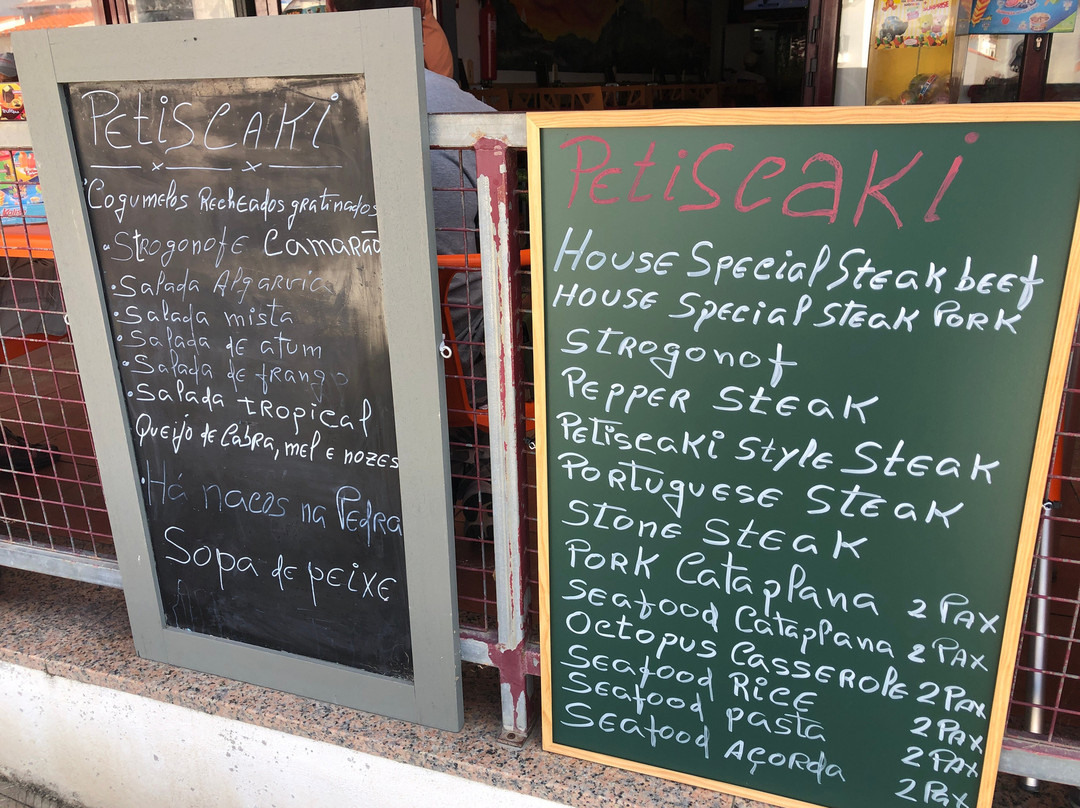 Petiscaki
Cogumelos Recheados gratinados
• Strogonofe Camarão
• Salada Algarvia
• Salada mista
• Salada de atum
• Salada de frango
• Salada tropical
Queijo de Cabra, mel e nozes
• Há nacos na Pedra
Sopa de peixe
Petiscaki
House Special Steak beef
House Special Steak Pork
Strogonof
Pepper Steak
Petiscaki Style Steak
Portuguese Steak
Stone Steak
Pork Cataplana 2 Pax
Seafood Cataplana 2 Pax
Octopus Casserole 2 Pax
Seafood Rice 2 Pax
Seafood pasta 2 Pax
Seafood Açorda 2 Pax